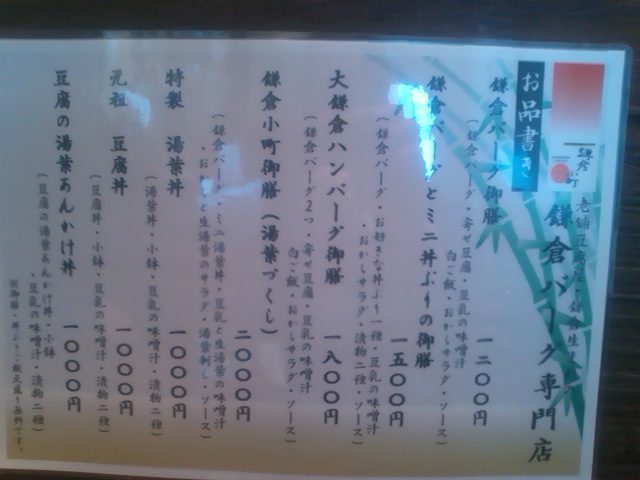 お品書き
鎌倉バーグ専門店
鎌倉バーグ御膳 一二〇〇円
(鎌倉バーグ・寄せ豆腐・豆乳の味噌汁
白ご飯・おからサラダ・ソース)
鎌倉バーグとミニ丼ぶりの御膳 一五〇〇円
(鎌倉バーグ・お好きな丼ぶり一種・豆乳の味噌汁
・おからサラダ・漬物二種・ソース)
大鎌倉ハンバーグ御膳 一八〇〇円
(鎌倉バーグ2つ・寄せ豆腐・豆乳の味噌汁
白ご飯・おからサラダ・ソース)
鎌倉小町御膳(湯葉づくし) 二〇〇〇円
(鎌倉バーグ・ミニ湯葉丼・豆乳と生湯葉の味噌汁
・おからと生湯葉のサラダ・湯葉刺し・ソース)
特製 湯葉丼 一〇〇〇円
(湯葉丼・小鉢・豆乳の味噌汁・漬物二種)
元祖 豆腐丼 一〇〇〇円
(豆腐丼・小鉢・豆乳の味噌汁・漬物二種)
豆腐の湯葉あんかけ丼 一〇〇〇円
(豆腐の湯葉あんかけ丼・小鉢
・豆乳の味噌汁・漬物二種)
※御膳・丼ぶりご飯大盛り無料です。